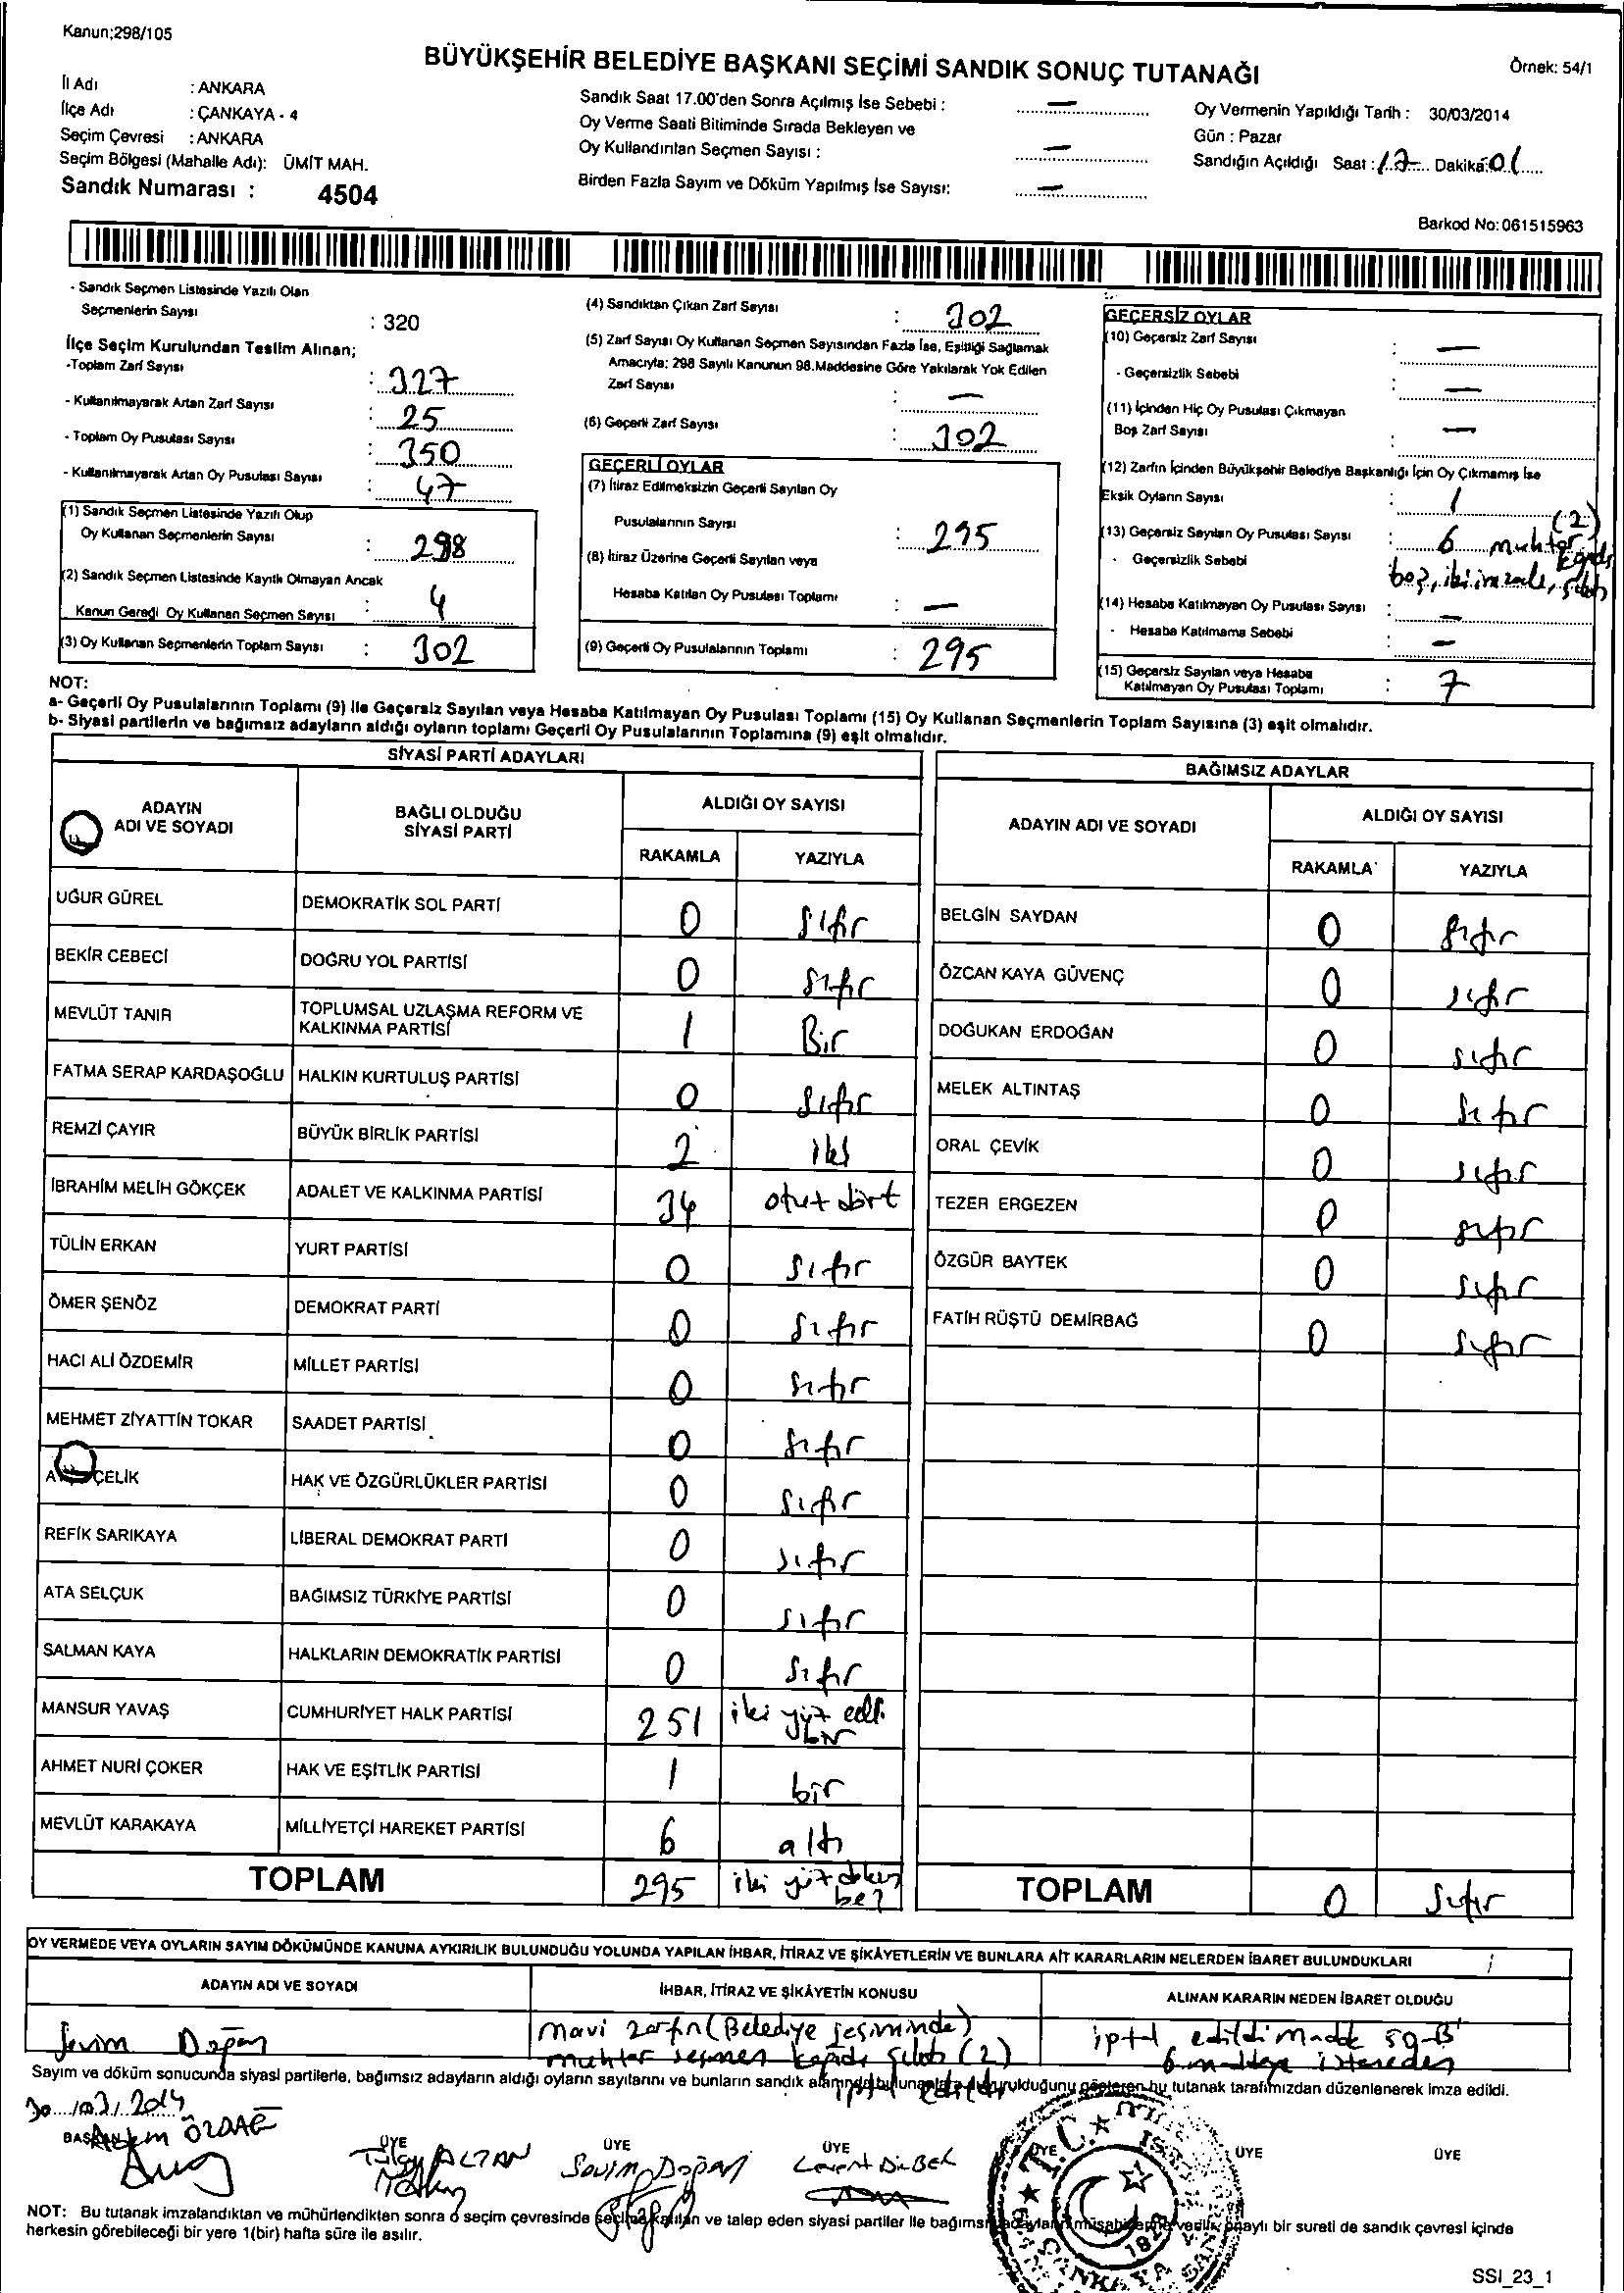 Kanun;298/105
BÜYÜKŞEHİR BELEDİYE BAŞKANI SEÇİMİ SANDIK SONUÇ TUTANAĞI
Örnek: 54/1
İl Adı : ANKARA
İlçe Adı : ÇANKAYA - 4
Seçim Çevresi : ANKARA
Seçim Bölgesi (Mahalle Adı): ÜMİT MAH.
Sandık Numarası : 4504
Sandık Saat 17.00'den Sonra Açılmış İse Sebebi : —
Oy Verme Saati Bitiminde Sırada Bekleyen ve
Oy Kullandırılan Seçmen Sayısı : —
Birden Fazla Sayım ve Döküm Yapılmış İse Sayısı: —
Oy Vermenin Yapıldığı Tarih : 30/03/2014
Gün : Pazar
Sandığın Açıldığı Saat : 17 Dakika: 01
Barkod No: 061515963
- Sandık Seçmen Listesinde Yazılı Olan
Seçmenlerin Sayısı : 320
İlçe Seçim Kurulundan Teslim Alınan;
-Toplam Zarf Sayısı : 327
- Kullanılmayarak Artan Zarf Sayısı : 25
- Toplam Oy Pusulası Sayısı : 350
- Kullanılmayarak Artan Oy Pusulası Sayısı : 47
(1) Sandık Seçmen Listesinde Yazılı Olup
Oy Kullanan Seçmenlerin Sayısı : 298
(2) Sandık Seçmen Listesinde Kayıtlı Olmayan Ancak
Kanun Gereği Oy Kullanan Seçmen Sayısı : 4
(3) Oy Kullanan Seçmenlerin Toplam Sayısı : 302
(4) Sandıktan Çıkan Zarf Sayısı : 302
(5) Zarf Sayısı Oy Kullanan Seçmen Sayısından Fazla İse, Eşitliği Sağlamak
Amacıyla: 298 Sayılı Kanunun 98.Maddesine Göre Yakılarak Yok Edilen
Zarf Sayısı : —
(6) Geçerli Zarf Sayısı : 302
GEÇERLİ OYLAR
(7) İtiraz Edilmeksizin Geçerli Sayılan Oy
Pusulalarının Sayısı : 295
(8) İtiraz Üzerine Geçerli Sayılan veya
Hesaba Katılan Oy Pusulası Toplamı : —
(9) Geçerli Oy Pusulalarının Toplamı : 295
GEÇERSİZ OYLAR
(10) Geçersiz Zarf Sayısı : —
- Geçersizlik Sebebi : —
(11) İçinden Hiç Oy Pusulası Çıkmayan
Boş Zarf Sayısı : —
(12) Zarfın İçinden Büyükşehir Belediye Başkanlığı İçin Oy Çıkmamış İse
Eksik Oyların Sayısı : 1
(13) Geçersiz Sayılan Oy Pusulası Sayısı : 6 muhtar (2)
- Geçersizlik Sebebi boş, iki
(14) Hesaba Katılmayan Oy Pusulası Sayısı : —
- Hesaba Katılmama Sebebi : —
(15) Geçersiz Sayılan veya Hesaba
Katılmayan Oy Pusulası Toplamı : 7
NOT:
a- Geçerli Oy Pusulalarının Toplamı (9) ile Geçersiz Sayılan veya Hesaba Katılmayan Oy Pusulası Toplamı (15) Oy Kullanan Seçmenlerin Toplam Sayısına (3) eşit olmalıdır.
b- Siyasi partilerin ve bağımsız adayların aldığı oyların toplamı Geçerli Oy Pusulalarının Toplamına (9) eşit olmalıdır.
SİYASİ PARTİ ADAYLARI
ADAYIN ADI VE SOYADI BAĞLI OLDUĞU SİYASİ PARTİ ALDIĞI OY SAYISI
RAKAMLA YAZIYLA
UĞUR GÜREL DEMOKRATİK SOL PARTİ 0 sıfır
BEKİR CEBECİ DOĞRU YOL PARTİSİ 0 sıfır
MEVLÜT TANIR TOPLUMSAL UZLAŞMA REFORM VE KALKINMA PARTİSİ 1 Bir
FATMA SERAP KARDAŞOĞLU HALKIN KURTULUŞ PARTİSİ 0 sıfır
REMZİ ÇAYIR BÜYÜK BİRLİK PARTİSİ 2 iki
İBRAHİM MELİH GÖKÇEK ADALET VE KALKINMA PARTİSİ 34 otuz dört
TÜLİN ERKAN YURT PARTİSİ 0 sıfır
ÖMER ŞENÖZ DEMOKRAT PARTİ 0 sıfır
HACI ALİ ÖZDEMİR MİLLET PARTİSİ 0 sıfır
MEHMET ZİYATTİN TOKAR SAADET PARTİSİ 0 sıfır
ÇELİK HAK VE ÖZGÜRLÜKLER PARTİSİ 0 sıfır
REFİK SARIKAYA LİBERAL DEMOKRAT PARTİ 0 sıfır
ATA SELÇUK BAĞIMSIZ TÜRKİYE PARTİSİ 0 sıfır
SALMAN KAYA HALKLARIN DEMOKRATİK PARTİSİ 0 sıfır
MANSUR YAVAŞ CUMHURİYET HALK PARTİSİ 251 iki yüz elli bir
AHMET NURİ ÇOKER HAK VE EŞİTLİK PARTİSİ 1 bir
MEVLÜT KARAKAYA MİLLİYETÇİ HAREKET PARTİSİ 6 altı
TOPLAM 295 iki yüz doksan beş
BAĞIMSIZ ADAYLAR
ADAYIN ADI VE SOYADI ALDIĞI OY SAYISI
RAKAMLA YAZIYLA
BELGİN SAYDAN 0 sıfır
ÖZCAN KAYA GÜVENÇ 0 sıfır
DOĞUKAN ERDOĞAN 0 sıfır
MELEK ALTINTAŞ 0 sıfır
ORAL ÇEVİK 0 sıfır
TEZER ERGEZEN 0 sıfır
ÖZGÜR BAYTEK 0 sıfır
FATİH RÜŞTÜ DEMİRBAĞ 0 sıfır
TOPLAM 0 sıfır
OY VERMEDE VEYA OYLARIN SAYIM DÖKÜMÜNDE KANUNA AYKIRILIK BULUNDUĞU YOLUNDA YAPILAN İHBAR, İTİRAZ VE ŞİKÂYETLERİN VE BUNLARA AİT KARARLARIN NELERDEN İBARET BULUNDUKLARI
ADAYIN ADI VE SOYADI İHBAR, İTİRAZ VE ŞİKÂYETİN KONUSU ALINAN KARARIN NEDEN İBARET OLDUĞU
Sevim Doğan
mavi zarfın (Belediye seçiminde)
muhtar seçmen kağıdı çıktı (2)
iptal edildi
iptal edildi madde
Sayım ve döküm sonucunda siyasi partilerle, bağımsız adayların aldığı oyların sayılarını ve bunların sandık alanında bulunanlara duyurulduğunu gösteren bu tutanak tarafımızdan düzenlenerek imza edildi.
30/03/2014
BAŞKAN ÜYE ÜYE ÜYE ÜYE ÜYE ÜYE
Adem ÖZDAĞ
ALTAN
Sevim Doğan
Levent
T.C.
ÇANKAYA
NOT: Bu tutanak imzalandıktan ve mühürlendikten sonra o seçim çevresinde seçime katılan ve talep eden siyasi partiler ile bağımsız adayların müşahitlerine verilir, onaylı bir sureti de sandık çevresi içinde
herkesin görebileceği bir yere 1(bir) hafta süre ile asılır.
SSI_23_1